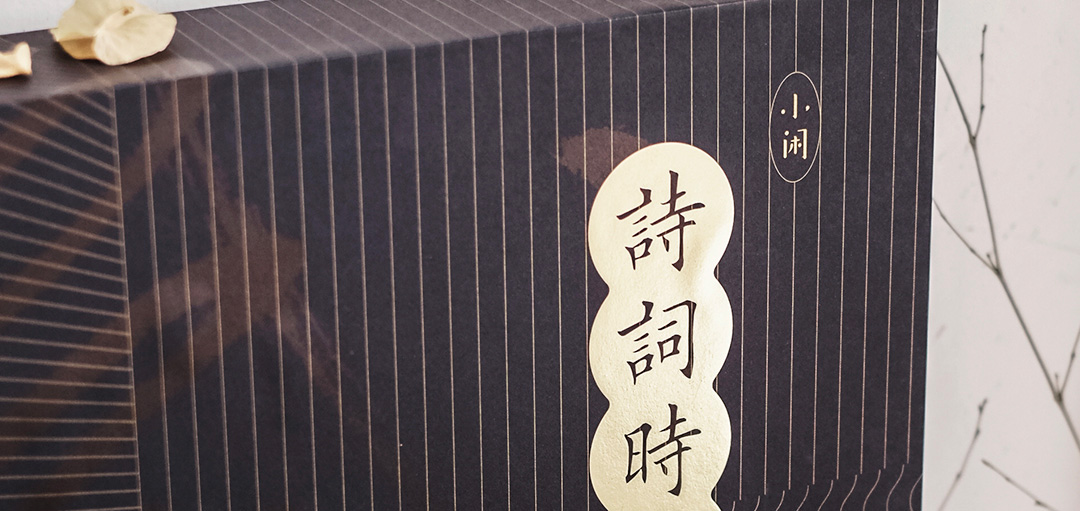 小闲
詩詞時